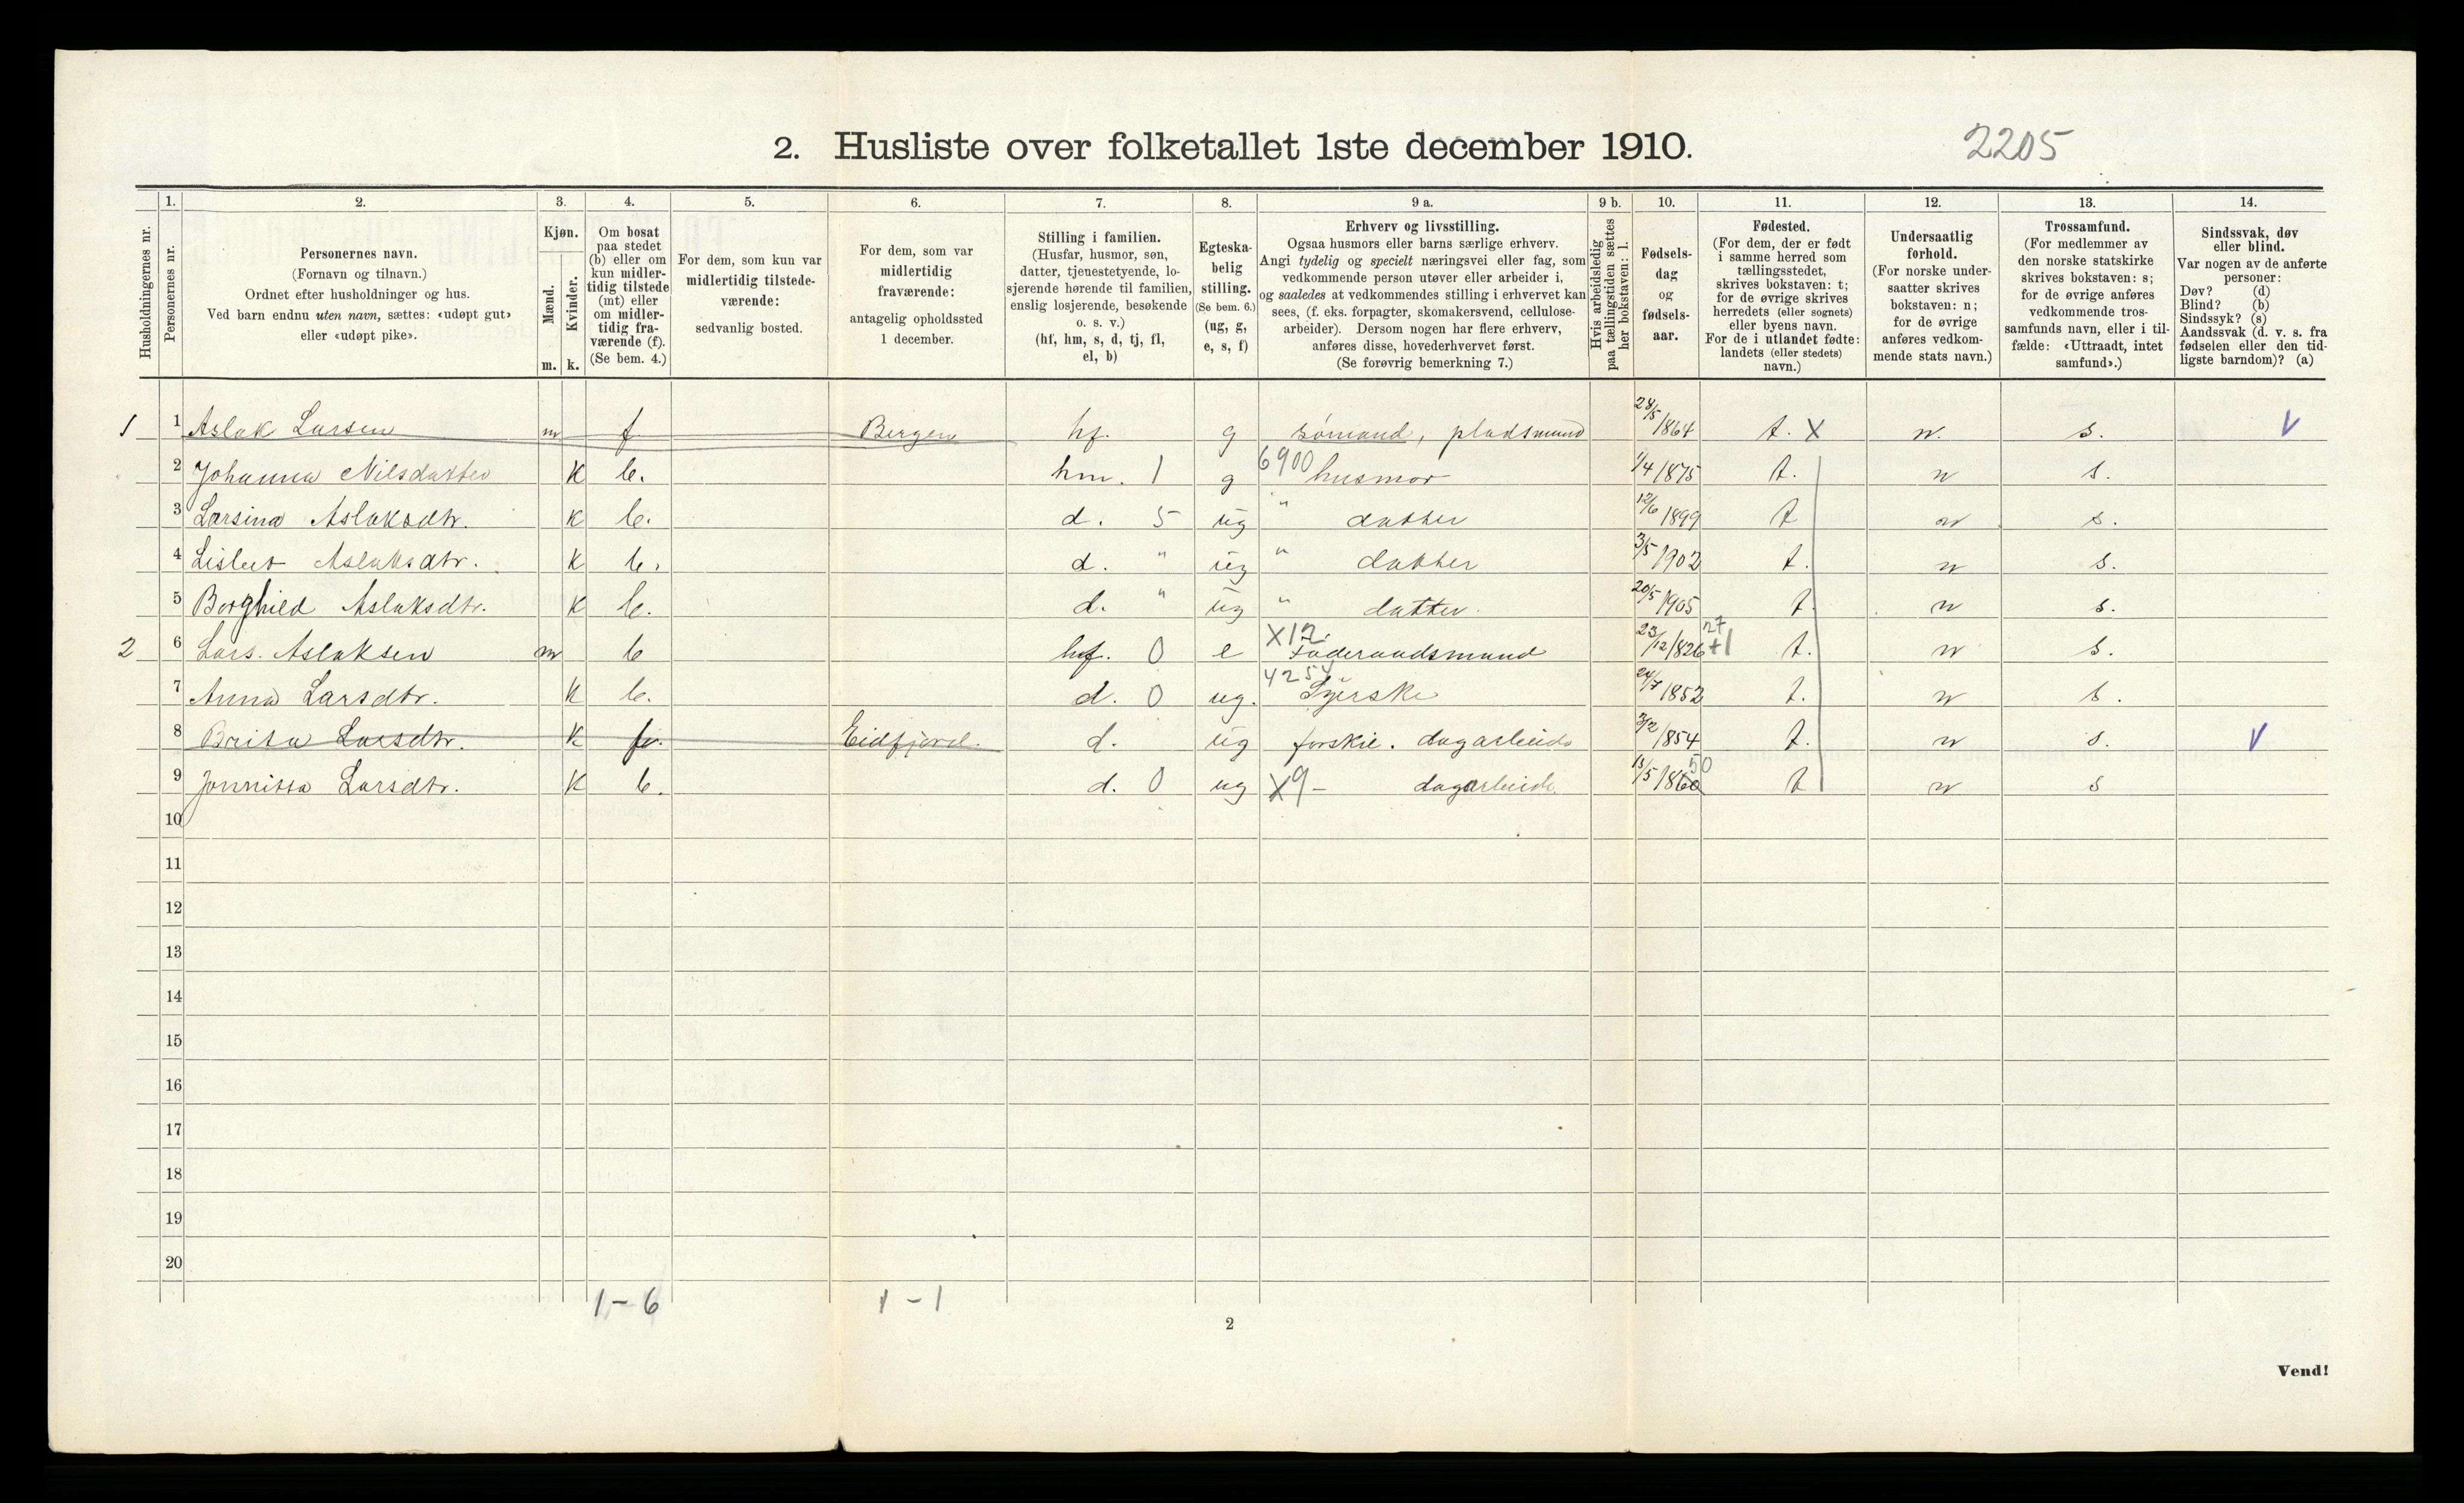 2. Husliste over folketallet 1ste december 1910.
2205
Husholdningernes nr.
1.
Personernes nr.
2.
Personernes navn.
(Fornavn og tilnavn.)
Ordnet efter husholdninger og hus.
Ved barn endnu uten navn, sættes: «udøpt gut»
eller «udøpt pike».
3.
Kjøn.
Mænd.
Kvinder.
m. k.
4.
Om bosat
paa stedet
(b) eller om
kun midler-
tidig tilstede
(mt) eller
om midler-
tidig fra-
værende (f).
(Se bem. 4.)
5.
For dem, som kun var
midlertidig tilstede-
værende:
sedvanlig bosted.
6.
For dem, som var
midlertidig
fraværende:
antagelig opholdssted
1 december.
7.
Stilling i familien.
(Husfar, husmor, søn,
datter, tjenestetyende, lo-
sjerende hørende til familien,
enslig losjerende, besøkende
o. s. v.)
(hf, hm, s, d, tj, fl,
el, b)
8.
Egteska-
belig
stilling.
(Se bem. 6.)
(ug, g,
e, s, f)
9 a.
Erhverv og livsstilling.
Ogsaa husmors eller barns særlige erhverv.
Angi tydelig og specielt næringsvei eller fag, som
vedkommende person utøver eller arbeider i,
og saaledes at vedkommendes stilling i erhvervet kan
sees, (f. eks. forpagter, skomakersvend, cellulose-
arbeider). Dersom nogen har flere erhverv,
anføres disse, hovederhvervet først.
(Se forøvrig bemerkning 7.)
9 b.
Hvis arbeidsledig
paa tællingstiden sættes
her bokstaven: l.
10.
Fødsels-
dag
og
fødsels-
aar.
11.
Fødested.
(For dem, der er født
i samme herred som
tællingsstedet,
skrives bokstaven: t;
for de øvrige skrives
herredets (eller sognets)
eller byens navn.
For de i utlandet fødte:
landets (eller stedets)
navn.)
12.
Undersaatlig
forhold.
(For norske under-
saatter skrives
bokstaven: n;
for de øvrige
anføres vedkom-
mende stats navn.)
13.
Trossamfund.
(For medlemmer av
den norske statskirke
skrives bokstaven: s;
for de øvrige anføres
vedkommende tros-
samfunds navn, eller i til-
fælde: «Uttraadt, intet
samfund».)
14.
Sindssvak, døv
eller blind.
Var nogen av de anførte
personer:
Døv? (d)
Blind? (b)
Sindssyk? (s)
Aandssvak (d. v. s. fra
fødselen eller den tid-
ligste barndom)? (a)
1 1 Aslak Larsen m f Bergen hf. g sømand, pladsmand 28/5 1864 t. X n. s. V
2 Johanna Nilsdatter K b. hm. 1 g 6900 husmor 1/4 1875 t. n s.
3 Larsina Aslaksdtr. K b. d. 5 ug " datter 12/6 1899 t n s.
4 Aslaksdtr. K b. d. " ug " datter 3/5 1902 t. n s.
5 Borghild Aslaksdtr. K b. d. " ug " datter 20/5 1905 t. n s.
2 6 Lars. Aslaksen m b hf. 0 e X12. Føderaadsmand 23/12 1826 27 +1 t. n s.
7 Anna Larsdtr. K b. d. 0 ug. 4254 Syerske 24/7 1852 t. n s.
8 Brita Larsdtr. K f. Eidfjord. d. ug forskil. dagarbeide 3/2 1854 t. n s. V
9 Jonnitta Larsdtr. K b. d. 0 ug X9 - dagarbeide 13/5 1860 50 t n s
10
11
12
13
14
15
16
17
18
19
20
1 - 6 1 - 1
2
Vend!